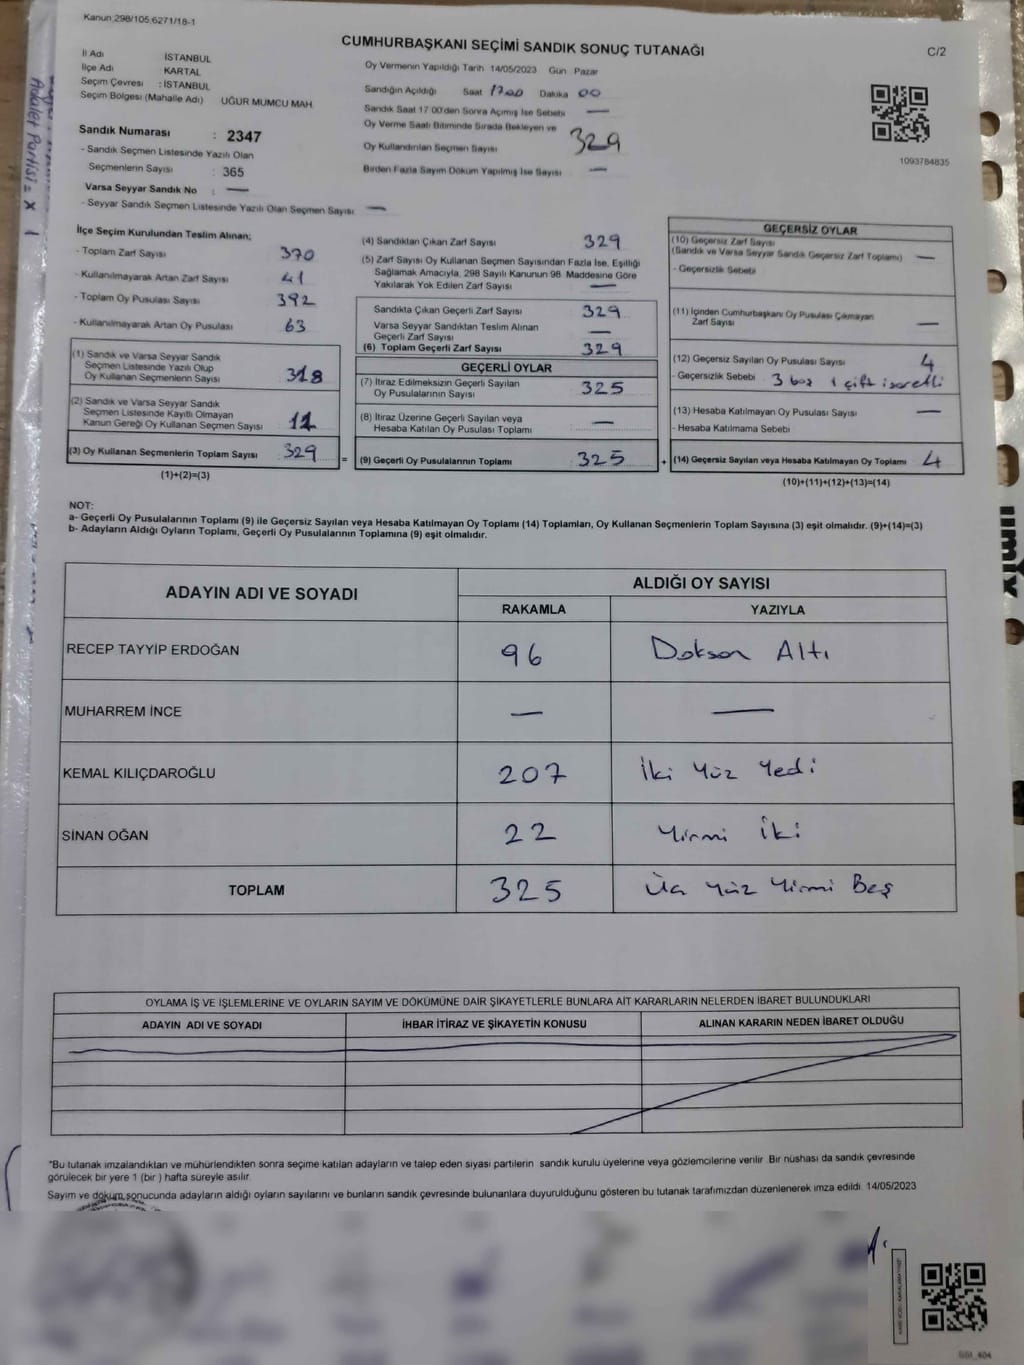 Kanun:298/105,6271/18-1
CUMHURBAŞKANI SEÇİMİ SANDIK SONUÇ TUTANAĞI
C/2
İl Adı İSTANBUL
İlçe Adı KARTAL
Seçim Çevresi : İSTANBUL
Seçim Bölgesi (Mahalle Adı) UĞUR MUMCU MAH.
Sandık Numarası : 2347
- Sandık Seçmen Listesinde Yazılı Olan
Seçmenlerin Sayısı : 365
Varsa Seyyar Sandık No : —
- Seyyar Sandık Seçmen Listesinde Yazılı Olan Seçmen Sayısı —
Oy Vermenin Yapıldığı Tarih 14/05/2023 Gün Pazar
Sandığın Açıldığı Saat 17 00 Dakika 00
Sandık Saat 17:00'den Sonra Açılmış İse Sebebi —
Oy Verme Saati Bitiminde Sırada Bekleyen ve
Oy Kullandırılan Seçmen Sayısı 329
Birden Fazla Sayım Döküm Yapılmış İse Sayısı —
1093784835
Adalet Partisi = X 1
İlçe Seçim Kurulundan Teslim Alınan;
- Toplam Zarf Sayısı 370
- Kullanılmayarak Artan Zarf Sayısı 41
- Toplam Oy Pusulası Sayısı 392
- Kullanılmayarak Artan Oy Pusulası 63
(1) Sandık ve Varsa Seyyar Sandık
Seçmen Listesinde Yazılı Olup
Oy Kullanan Seçmenlerin Sayısı 318
(2) Sandık ve Varsa Seyyar Sandık
Seçmen Listesinde Kayıtlı Olmayan
Kanun Gereği Oy Kullanan Seçmen Sayısı 11
(3) Oy Kullanan Seçmenlerin Toplam Sayısı 329
(1)+(2)=(3)
=
(4) Sandıktan Çıkan Zarf Sayısı 329
(5) Zarf Sayısı Oy Kullanan Seçmen Sayısından Fazla İse, Eşitliği
Sağlamak Amacıyla, 298 Sayılı Kanunun 98. Maddesine Göre
Yakılarak Yok Edilen Zarf Sayısı —
Sandıkta Çıkan Geçerli Zarf Sayısı 329
Varsa Seyyar Sandıktan Teslim Alınan
Geçerli Zarf Sayısı —
(6) Toplam Geçerli Zarf Sayısı 329
GEÇERLİ OYLAR
(7) İtiraz Edilmeksizin Geçerli Sayılan
Oy Pusulalarının Sayısı 325
(8) İtiraz Üzerine Geçerli Sayılan veya
Hesaba Katılan Oy Pusulası Toplamı —
(9) Geçerli Oy Pusulalarının Toplamı 325
+
GEÇERSİZ OYLAR
(10) Geçersiz Zarf Sayısı
(Sandık ve Varsa Seyyar Sandık Geçersiz Zarf Toplamı) —
- Geçersizlik Sebebi
(11) İçinden Cumhurbaşkanı Oy Pusulası Çıkmayan
Zarf Sayısı —
(12) Geçersiz Sayılan Oy Pusulası Sayısı 4
- Geçersizlik Sebebi 3 boş 1 çift işaretli
(13) Hesaba Katılmayan Oy Pusulası Sayısı —
- Hesaba Katılmama Sebebi
(14) Geçersiz Sayılan veya Hesaba Katılmayan Oy Toplamı 4
(10)+(11)+(12)+(13)=(14)
NOT:
a- Geçerli Oy Pusulalarının Toplamı (9) ile Geçersiz Sayılan veya Hesaba Katılmayan Oy Toplamı (14) Toplamları, Oy Kullanan Seçmenlerin Toplam Sayısına (3) eşit olmalıdır. (9)+(14)=(3)
b- Adayların Aldığı Oyların Toplamı, Geçerli Oy Pusulalarının Toplamına (9) eşit olmalıdır.
ADAYIN ADI VE SOYADI ALDIĞI OY SAYISI
RAKAMLA YAZIYLA
RECEP TAYYİP ERDOĞAN 96 Doksan Altı
MUHARREM İNCE — —
KEMAL KILIÇDAROĞLU 207 İki Yüz Yedi
SİNAN OĞAN 22 Yirmi İki
TOPLAM 325 Üç Yüz Yirmi Beş
OYLAMA İŞ VE İŞLEMLERİNE VE OYLARIN SAYIM VE DÖKÜMÜNE DAİR ŞİKAYETLERLE BUNLARA AİT KARARLARIN NELERDEN İBARET BULUNDUKLARI
ADAYIN ADI VE SOYADI İHBAR İTİRAZ VE ŞİKAYETİN KONUSU ALINAN KARARIN NEDEN İBARET OLDUĞU
*Bu tutanak imzalandıktan ve mühürlendikten sonra seçime katılan adayların ve talep eden siyasi partilerin sandık kurulu üyelerine veya gözlemcilerine verilir. Bir nüshası da sandık çevresinde
görülecek bir yere 1 (bir) hafta süreyle asılır.
Sayım ve döküm sonucunda adayların aldığı oyların sayılarını ve bunların sandık çevresinde bulunanlara duyurulduğunu gösteren bu tutanak tarafımızdan düzenlenerek imza edildi. 14/05/2023